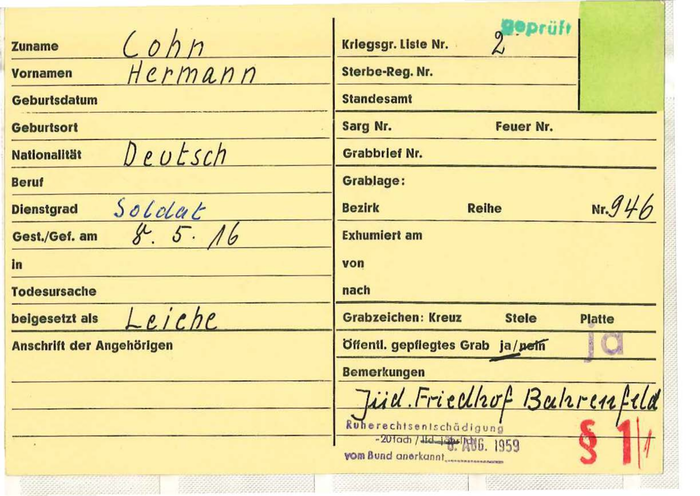 geprüft
Zuname Cohn
Vornamen Hermann
Geburtsdatum
Geburtsort
Nationalität Deutsch
Beruf
Dienstgrad Soldat
Gest./Gef. am 8. 5. 16
in
Todesursache
beigesetzt als Leiche
Anschrift der Angehörigen
Kriegsgr. Liste Nr. 2
Sterbe-Reg. Nr.
Standesamt
Sarg Nr. Feuer Nr.
Grabbrief Nr.
Grablage:
Bezirk Reihe Nr. 946
Exhumiert am
von
nach
Grabzeichen: Kreuz Stele Platte
Öffentl. gepflegtes Grab ja/nein ja
Bemerkungen
Jüd. Friedhof Bahrenfeld
Ruherechtsentschädigung
-20fach / AUG. 1959
vom Bund anerkannt
§ 1/1